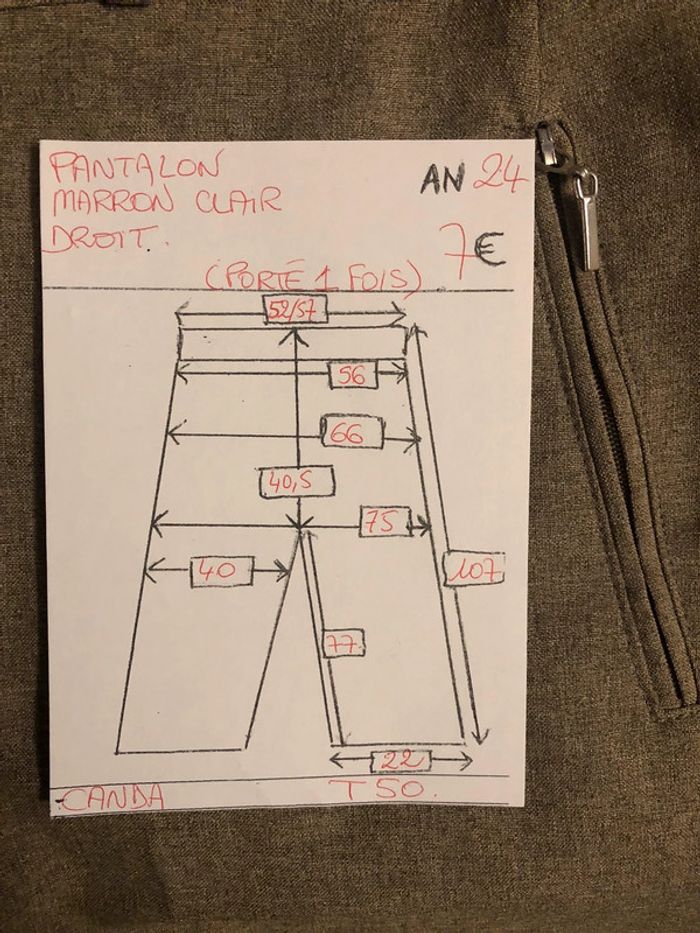 PANTALON
MARRON CLAIR
DROIT.
AN 24
7€
(PORTÉ 1 FOIS)
52/57
56
66
40,5
75
40
107
77
22
CANDA
T 50.